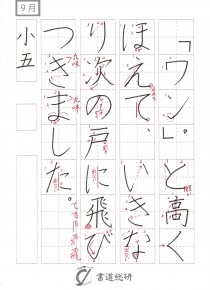 9月
「ウン」。と高く
ほえて、いきな
り次の戸に飛び
つきました。
小五
書道総研